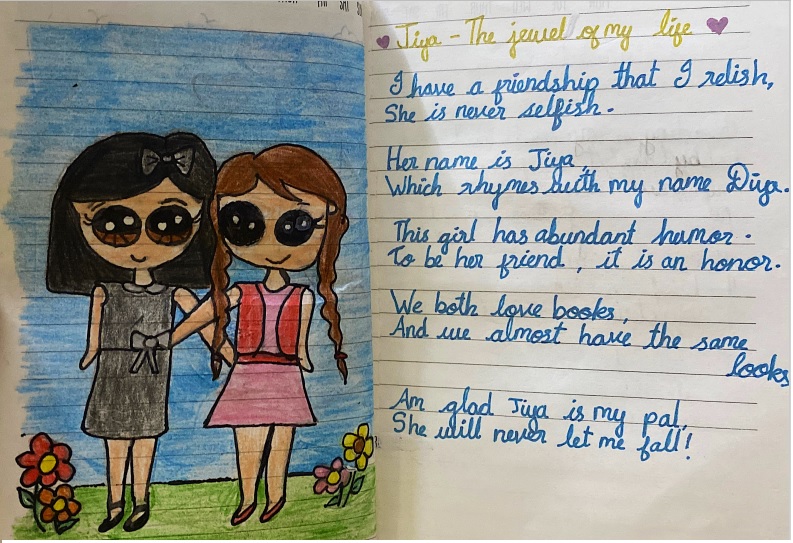 Jiya - The jewel of my life
I have a friendship that I relish,
She is never selfish.
Her name is Jiya,
Which rhymes with my name Diya.
This girl has abundant humor.
To be her friend, it is an honor.
We both love books,
And we almost have the same
looks
Am glad Jiya is my pal,
She will never let me fall!